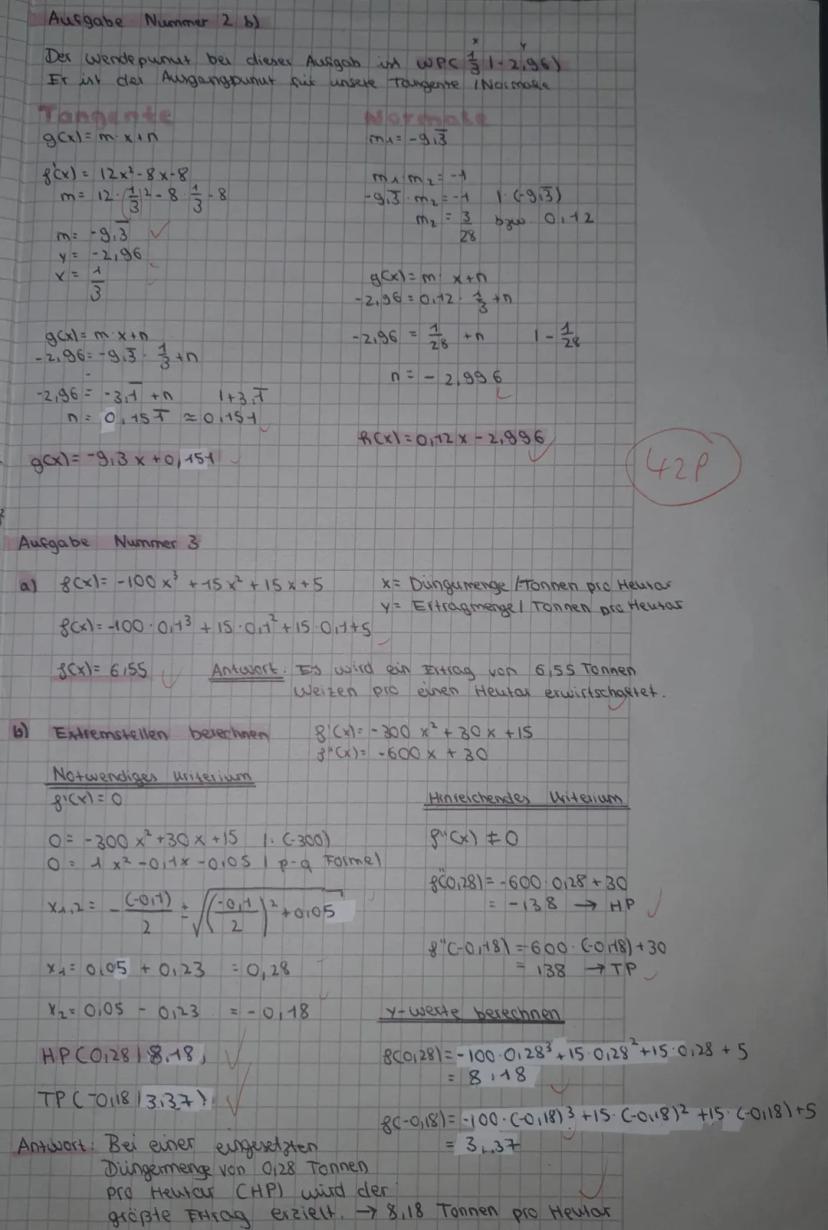 Aufgabe Nummer 2 b)
x y
Der Wendepunkt bei dieser Aufgab ist WP( 1/3 | -2,96)
Er ist der Ausgangpunkt für unsere Tangente / Normale
Tangente
g(x) = m·x+n
f'(x) = 12x² - 8x - 8
m = 12·(1/3)² - 8·1/3 - 8
m = -9,3̅ ✓
y = -2,96
x = 1/3
g(x) = m·x+n
-2,96 = -9,3̅ · 1/3 + n
-2,96 = -3,1̅ + n |+3,1̅
n = 0,151̅ ≈ 0,151
g(x) = -9,3x + 0,151
Normale
m₁ = -9,3̅
m₁ · m₂ = -1
-9,3̅ · m₂ = -1 | : (-9,3̅)
m₂ = 3/28 bzw 0,12
g(x) = m · x+n
-2,96 = 0,12 · 1/3 + n
-2,96 = 1/28 + n | - 1/28
n = -2,996
h(x) = 0,12x - 2,996
42P
Aufgabe Nummer 3
a) f(x) = -100x³ + 15x² + 15x + 5
x = Düngumenge / Tonnen pro Hektar
y = Ertragmenge / Tonnen pro Hektar
f(x) = -100 · 0,1³ + 15 · 0,1² + 15 · 0,1 + 5
f(x) = 6,55 ✓ Antwort: Es wird ein Ertrag von 6,55 Tonnen
Weizen pro einen Hektar erwirtschaftet.
b) Extremstellen berechnen
f'(x) = -300x² + 30x + 15
f''(x) = -600x + 30
Notwendiges Kriterium
f'(x) = 0
0 = -300x² + 30x + 15 | : (-300)
0 = 1x² - 0,1x - 0,05 | p-q Formel
x₁,₂ = - (-0,1)/2 ± √((-0,1/2)² + 0,05)
x₁ = 0,05 + 0,23 = 0,28
x₂ = 0,05 - 0,23 = -0,18
HP(0,28 | 8,18) ✓
TP(-0,18 | 3,37) ✓
Hinreichendes Kriterium
f''(x) ≠ 0
f''(0,28) = -600 · 0,28 + 30
= -138 → HP ✓
f''(-0,18) = -600 · (-0,18) + 30
= 138 → TP
y-Werte berechnen
f(0,28) = -100 · 0,28³ + 15 · 0,28² + 15 · 0,28 + 5
= 8,18
f(-0,18) = -100 · (-0,18)³ + 15 · (-0,18)² + 15 · (-0,18) + 5
= 3,37
Antwort: Bei einer eingesetzten
Düngermenge von 0,28 Tonnen
pro Hektar (HP) wird der
größte Ertrag erzielt. → 8,18 Tonnen pro Hektar